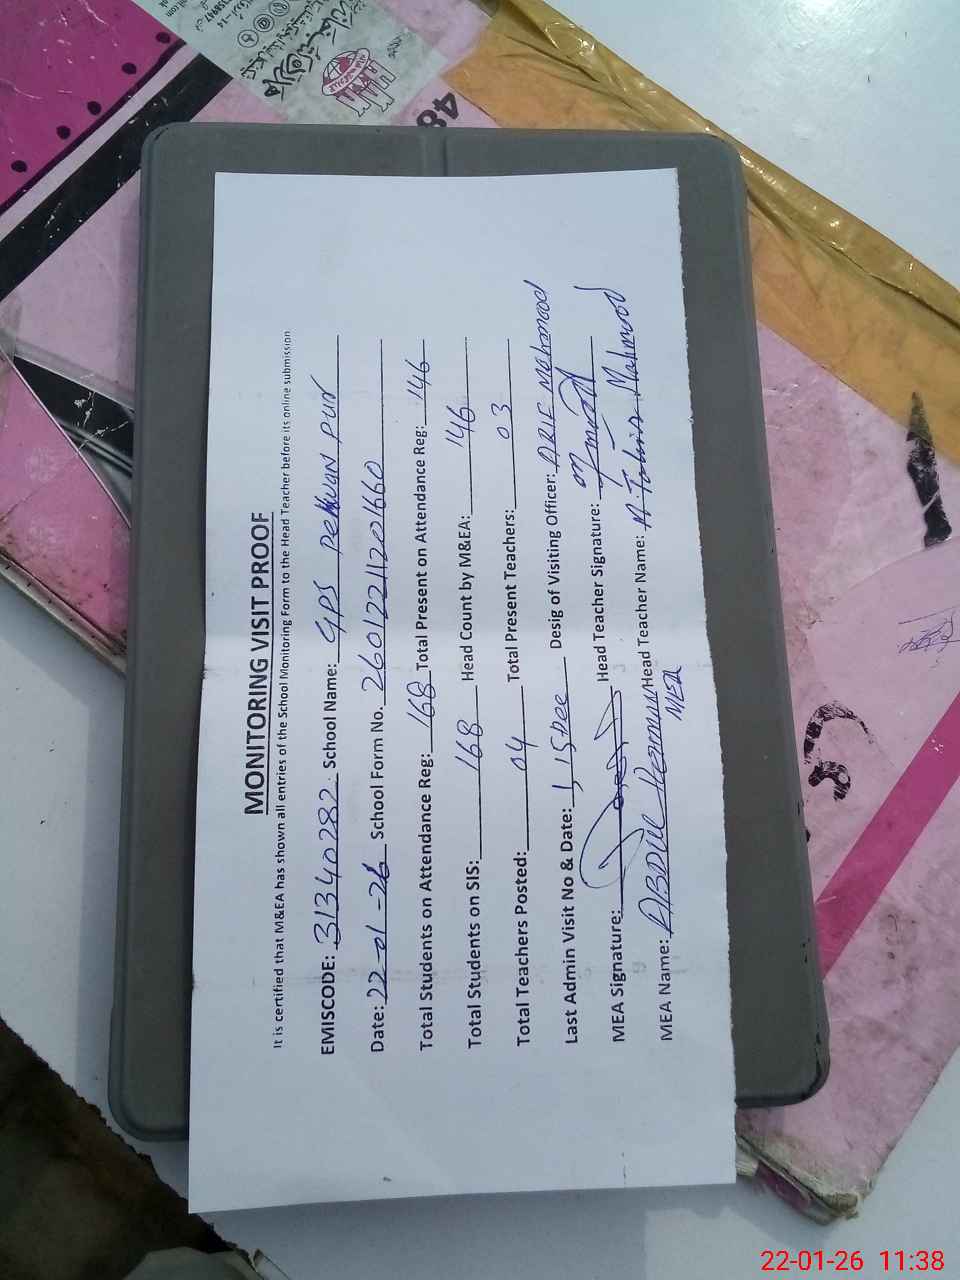 MONITORING VISIT PROOF
It is certified that M&EA has shown all entries of the School Monitoring Form to the Head Teacher before its online submission
EMISCODE: 31340282 School Name: GPS Pehwan pur
Date: 22-01-26 School Form No. 26012211201660
Total Students on Attendance Reg: 168 Total Present on Attendance Reg: 146
Total Students on SIS: 168 Head Count by M&EA: 146
Total Teachers Posted: 04 Total Present Teachers: 03
Last Admin Visit No & Date: 1, Desig of Visiting Officer: ARIF Mehmood
MEA Signature: Head Teacher Signature:
MEA Name: ABDUL Head Teacher Name: Mahmood
MEA
48
22-01-26 11:38